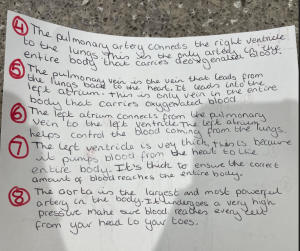 ④ The pulmonary artery connects the right ventricle
to the lungs. This is the only artery in the
entire body that carries deoxygenated blood.
⑤ The pulmonary vein is the vein that leads from
the lungs back to the heart. It leads into the
left atrium. This is only vein in the entire
body that carries oxygenated blood
⑥ The left atrium connects from the pulmonary
vein to the left ventricle. The left atrium
helps control the blood coming from the lungs.
⑦ The left ventricle is very thick, thats because
it pumps blood from the heart to the
entire body. It's thick to ensure the correct
amount of blood reaches the entire body.
⑧ The aorta is the largest and most powerful
artery in the body. It undergoes a very high
pressure make sure blood reaches every
from your head to your toes.